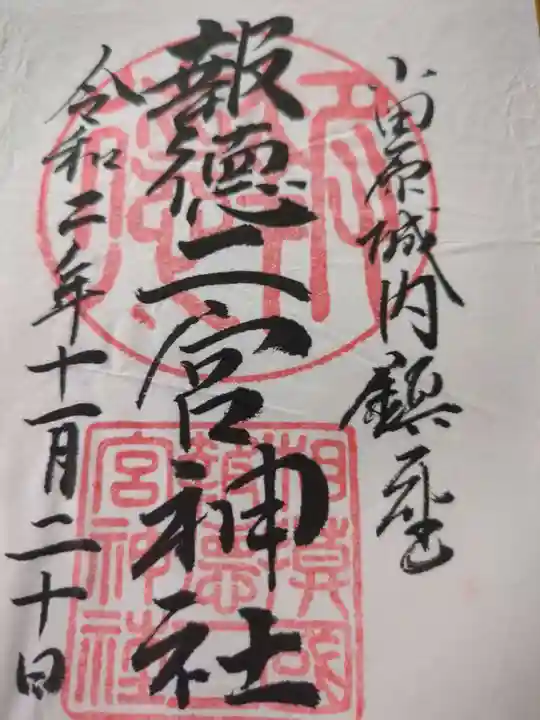 小田原城内鎮座
報徳二宮神社
令和二年十一月二十日
相模國
報徳二
宮神社